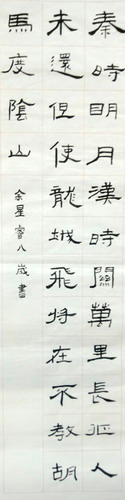 秦時明月漢時關萬里長征人
未還但使龍城飛將在不教胡
馬度陰山
余星睿八歲書